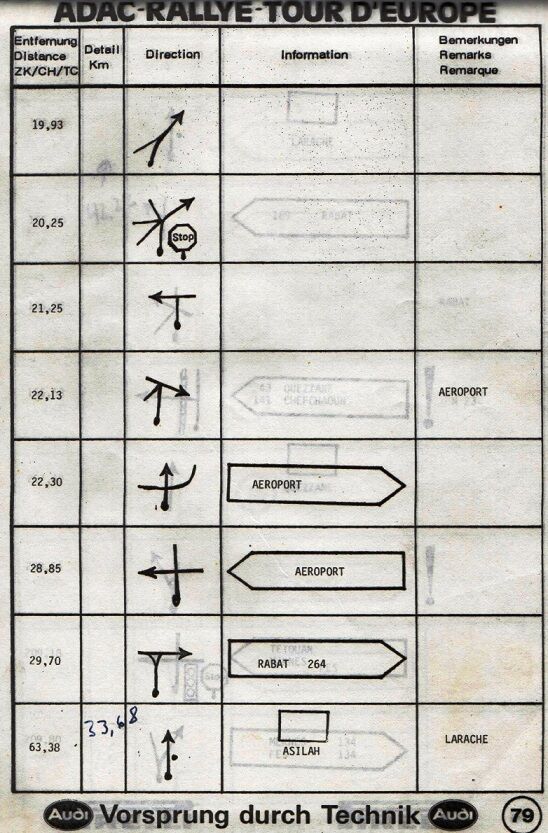 ADAC-RALLYE-TOUR D'EUROPE
Entfernung
Distance
ZK/CH/TC
Detail
Km
Direction
Information
Bemerkungen
Remarks
Remarque
19,93
LARACHE
20,25
Stop
RABAT
21,25
RABAT
22,13
OUEZZANE
CHEFCHAOUN
AEROPORT
22,30
AEROPORT
28,85
AEROPORT
29,70
TETOUAN
RABAT 264
63,38
33,68
ASILAH
134
134
LARACHE
Audi Vorsprung durch Technik Audi
79